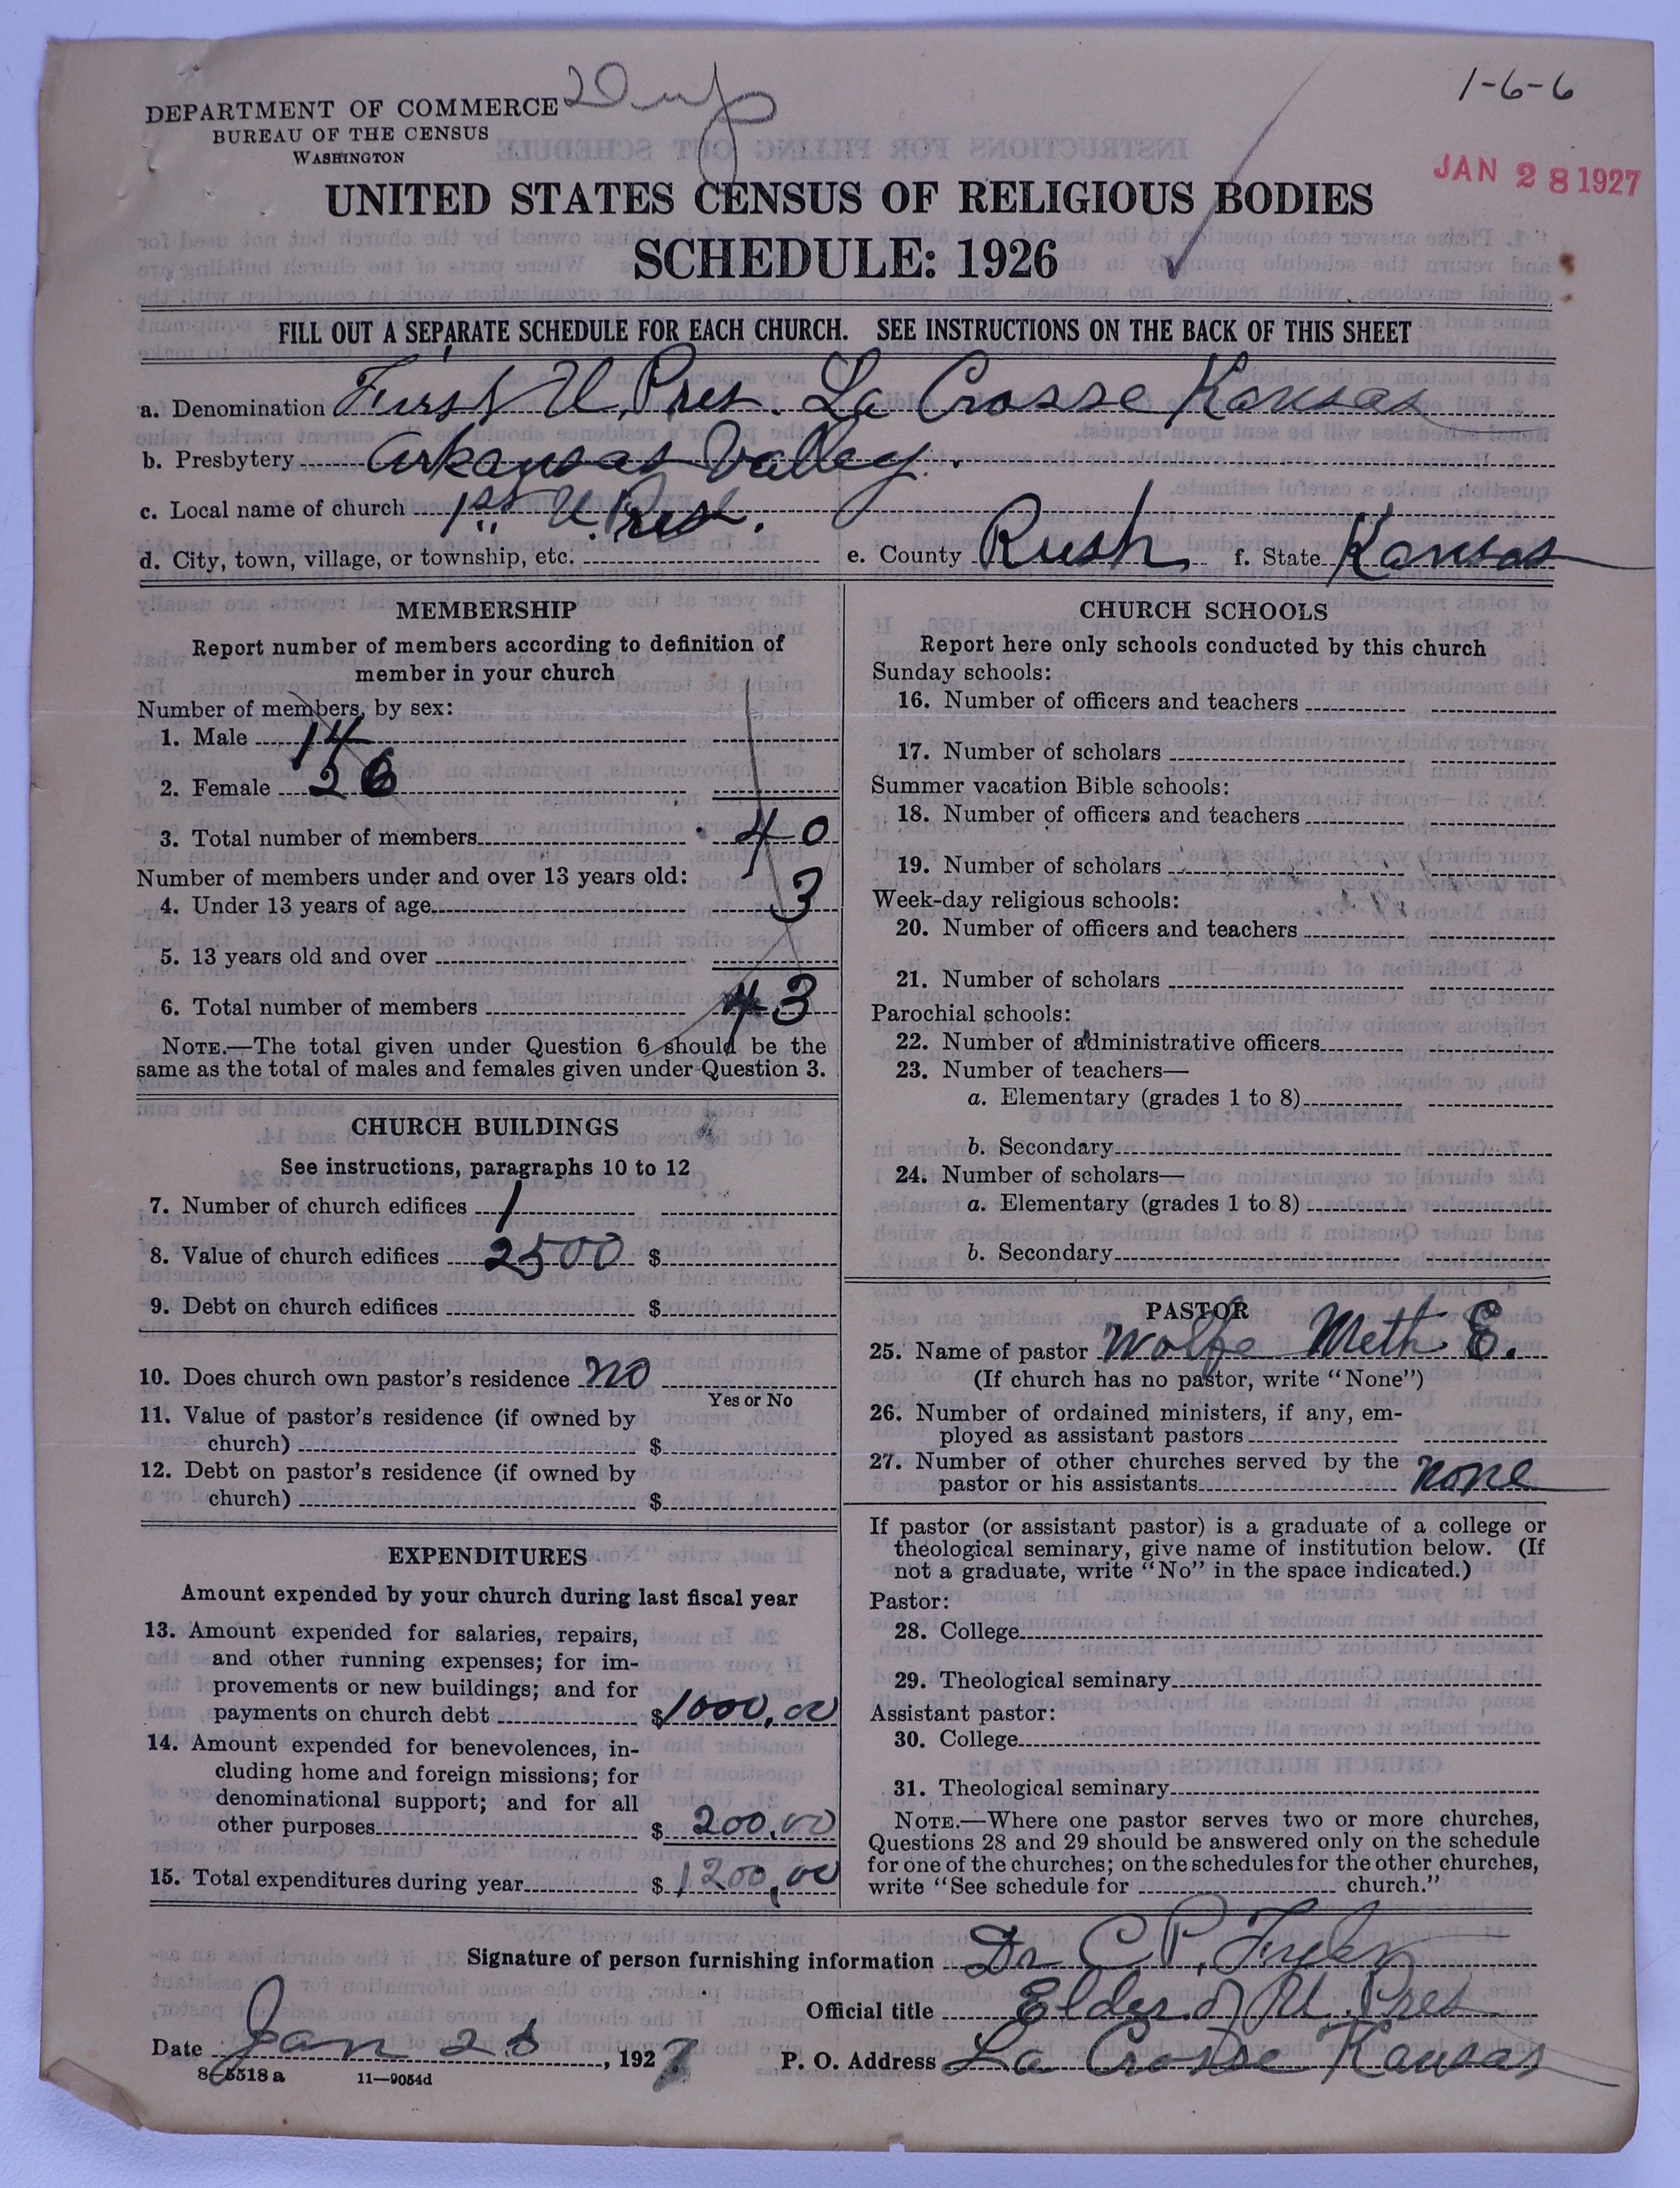 1-6-6
DEPARTMENT OF COMMERCE
BUREAU OF THE CENSUS
WASHINGTON
JAN 28 1927
UNITED STATES CENSUS OF RELIGIOUS BODIES
SCHEDULE: 1926
FILL OUT A SEPARATE SCHEDULE FOR EACH CHURCH. SEE INSTRUCTIONS ON THE BACK OF THIS SHEET
a. Denomination First U. Pres. La Crosse Kansas
b. Presbytery Arkansas Valley.
c. Local name of church 1st U Pres.
d. City, town, village, or township, etc. e. County Rush f. State Kansas
MEMBERSHIP
Report number of members according to definition of
member in your church
Number of members, by sex:
1. Male 14
2. Female 26
3. Total number of members 40
Number of members under and over 13 years old:
4. Under 13 years of age 3
5. 13 years old and over
6. Total number of members 43
NOTE.—The total given under Question 6 should be the
same as the total of males and females given under Question 3.
CHURCH BUILDINGS
See instructions, paragraphs 10 to 12
7. Number of church edifices 1
8. Value of church edifices 2500 $
9. Debt on church edifices $
10. Does church own pastor's residence no
Yes or No
11. Value of pastor's residence (if owned by
church) $
12. Debt on pastor's residence (if owned by
church) $
EXPENDITURES
Amount expended by your church during last fiscal year
13. Amount expended for salaries, repairs,
and other running expenses; for im-
provements or new buildings; and for
payments on church debt $1000.00
14. Amount expended for benevolences, in-
cluding home and foreign missions; for
denominational support; and for all
other purposes $ 200.00
15. Total expenditures during year $ 1200.00
CHURCH SCHOOLS
Report here only schools conducted by this church
Sunday schools:
16. Number of officers and teachers
17. Number of scholars
Summer vacation Bible schools:
18. Number of officers and teachers
19. Number of scholars
Week-day religious schools:
20. Number of officers and teachers
21. Number of scholars
Parochial schools:
22. Number of administrative officers
23. Number of teachers—
a. Elementary (grades 1 to 8)
b. Secondary
24. Number of scholars—
a. Elementary (grades 1 to 8)
b. Secondary
PASTOR
25. Name of pastor Wolfe Meth E.
(If church has no pastor, write "None")
26. Number of ordained ministers, if any, em-
ployed as assistant pastors
27. Number of other churches served by the
pastor or his assistants none
If pastor (or assistant pastor) is a graduate of a college or
theological seminary, give name of institution below. (If
not a graduate, write "No" in the space indicated.)
Pastor:
28. College
29. Theological seminary
Assistant pastor:
30. College
31. Theological seminary
NOTE.—Where one pastor serves two or more churches,
Questions 28 and 29 should be answered only on the schedule
for one of the churches; on the schedules for the other churches,
write "See schedule for church."
Signature of person furnishing information Dr C. P.
Official title Elder of U. Pres
Date Jan 28, 1927 P. O. Address La Crosse Kansas
8-5518 a 11—9054d